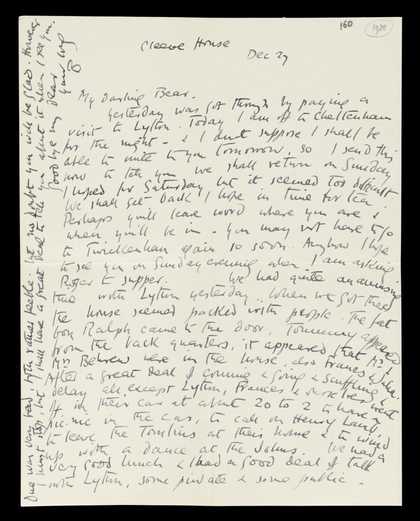 160
1920
Cleeve House
Dec 29
My Darling Bear.
Yesterday was got through by paying a
visit to Lytton. Today I am off to Cheltenham
for the night - & I don't suppose I shall be
able to write to you tomorrow, so I send this
now to tell you we shall return on Sunday
I hoped for Saturday but it seemed too difficult
We shall get back I hope in time for tea
Perhaps you'll leave word where you are &
when you'll be in - You may not have to go
to Twickenham again so soon. Anyhow I hope
to see you on Sunday evening when I am asking
Roger to supper. We had quite an amusing
time with Lytton yesterday. When we got there
the house seemed packed with people. The fat
boy Ralph came to the door. Tommy appeared
from the back quarters, it appeared that Mr &
Mrs were in the house, also Frances
After a great deal of coming & going & scuffling &
delay all except Lytton, Frances & ourselves went
off in their car at about 20 to 2 to have a
pic-nic in the car, to call on Henry Lamb,
to leave the Tomlins at their home & to wind
up with a dance at the Johns. We had a
very good lunch & had a good deal of talk
with Lytton, some private & some public -
One was very bad, rather people but no doubt you will be glad. However
I must stop but I shall have a great deal to tell you about it when I see you.
Goodbye my dear
Your loving
B